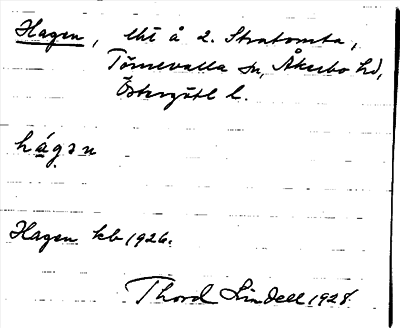 Hagen, lht å 2. Stratomta,
Törnevalla sn, Åkerbo hd,
Östergötl l.
hágən
Hagen kb 1926.
Thord Lindell 1928.